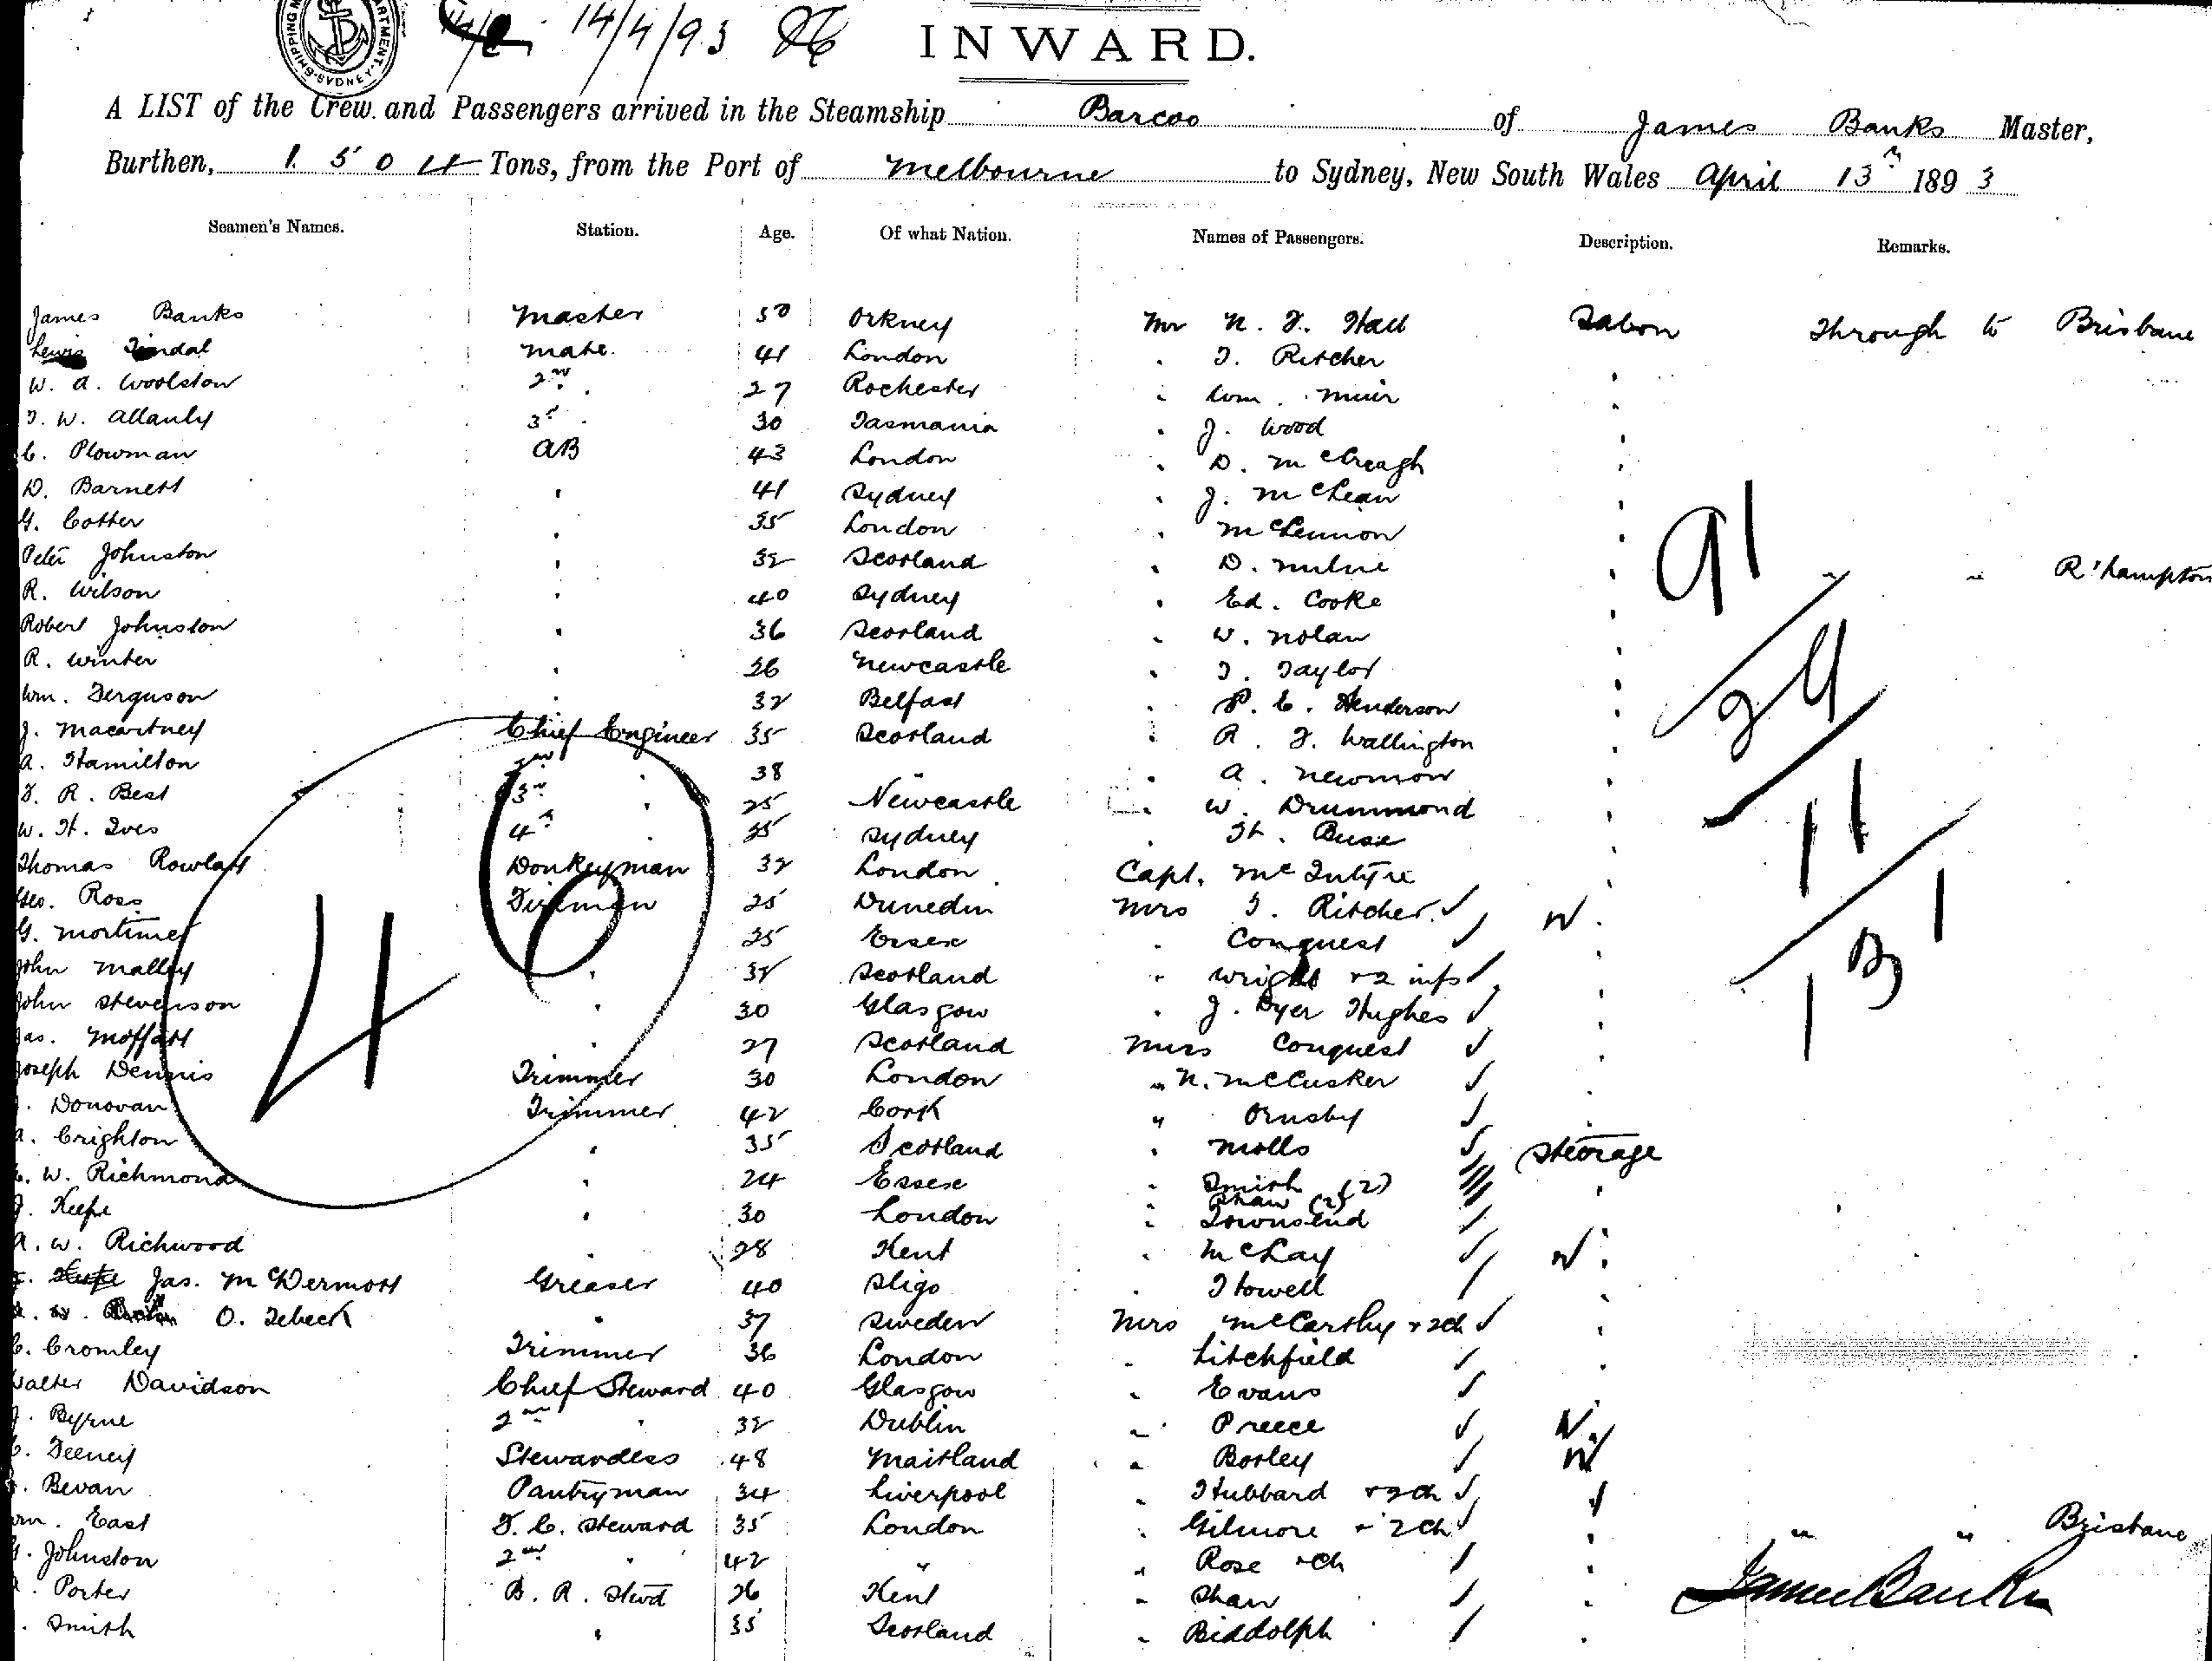 14/4/93
INWARD.
A LIST of the Crew and Passengers arrived in the Steamship Barcoo of James Banks Master,
Burthen, 1504 Tons, from the Port of Melbourne to Sydney, New South Wales April 13th 1893
Seamen's Names. Station. Age. Of what Nation. Names of Passengers. Description. Remarks.
James Banks Master 50 Orkney Mr N. F. Hall Saloon Through to Brisbane
Lewis Tindal Mate 41 London " T. Ritcher "
W. A. Woolston 2nd " 27 Rochester " Wm. Muir "
T. W. Allanly 3rd " 30 Tasmania " J. Wood "
C. Plowman AB 43 London " D. McCreagh "
D. Barnett " 41 Sydney " J. McLean "
G. Cotter " 35 London " McLennon "
Peter Johnston " 32 Scotland " D. Milne " " " R'hampton
R. Wilson " 40 Sydney " Ed. Cooke "
Robert Johnston " 36 Scotland " W. Nolan "
R. Winter " 26 Newcastle " T. Taylor "
Wm. Ferguson " 32 Belfast " P. C. Henderson "
J. Macartney Chief Engineer 35 Scotland " R. F. Wallington "
A. Hamilton 2nd " 38 " " A. Newman "
F. R. Best 3rd " 25 Newcastle " W. Drummond "
W. H. Ives 4th " 35 Sydney " H. Buse "
Thomas Rowlatt Donkeyman 32 London Capt. McIntyre "
Geo. Ross Fireman 25 Dunedin Mrs T. Ritcher "
G. Mortimer " 25 Essex " Conquest "
John Malley " 32 Scotland " Wright + 2 infs "
John Stevenson " 30 Glasgow " J. Dyer Hughes "
Jas. Moffatt " 27 Scotland Miss Conquest "
Joseph Dennis Trimmer 30 London " N. McCusker "
. Donovan Trimmer 42 Cork " Ornsby "
A. Crighton " 35 Scotland " Molls Steerage
C. W. Richmond " 24 Essex " Smith (2) "
" Shaw (2)
J. Keefe " 30 London " Townsend "
A. W. Richwood " 28 Kent " McLay "
Jas. McDermott Greaser 40 Sligo " Howell "
O. Zebeck " 37 Sweden Mrs McCarthy + 2ch "
C. Cromley Trimmer 36 London " Litchfield "
Walter Davidson Chief Steward 40 Glasgow " Evans "
J. Byrne 2nd " 32 Dublin " Preece "
C. Feeney Stewardess 48 Maitland " Borley "
. Bevan Pantryman 34 Liverpool " Hubbard + 2ch "
Wm. East F. C. Steward 35 London " Gilmore + 2ch " " " Brisbane
G. Johnston 2nd " 42 " " Rose + ch "
. Porter B. R. Stwd 26 Kent " Shaw "
. Smith " 35 Scotland " Biddolph "
40
91
24
11
131
James Banks